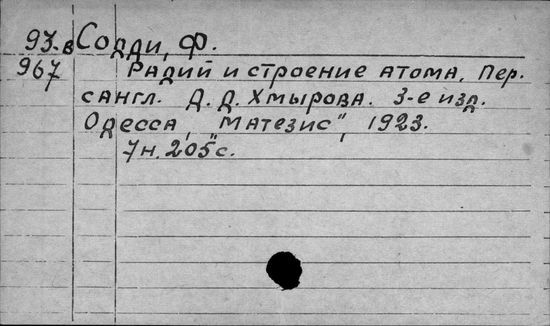 93.в Содди, Ф.
967 Радий и строение атома. Пер.
с англ. Д. Д. Хмырова. 3-е изд.
Одесса, "Матезис", 1923.
7н. 205 с.